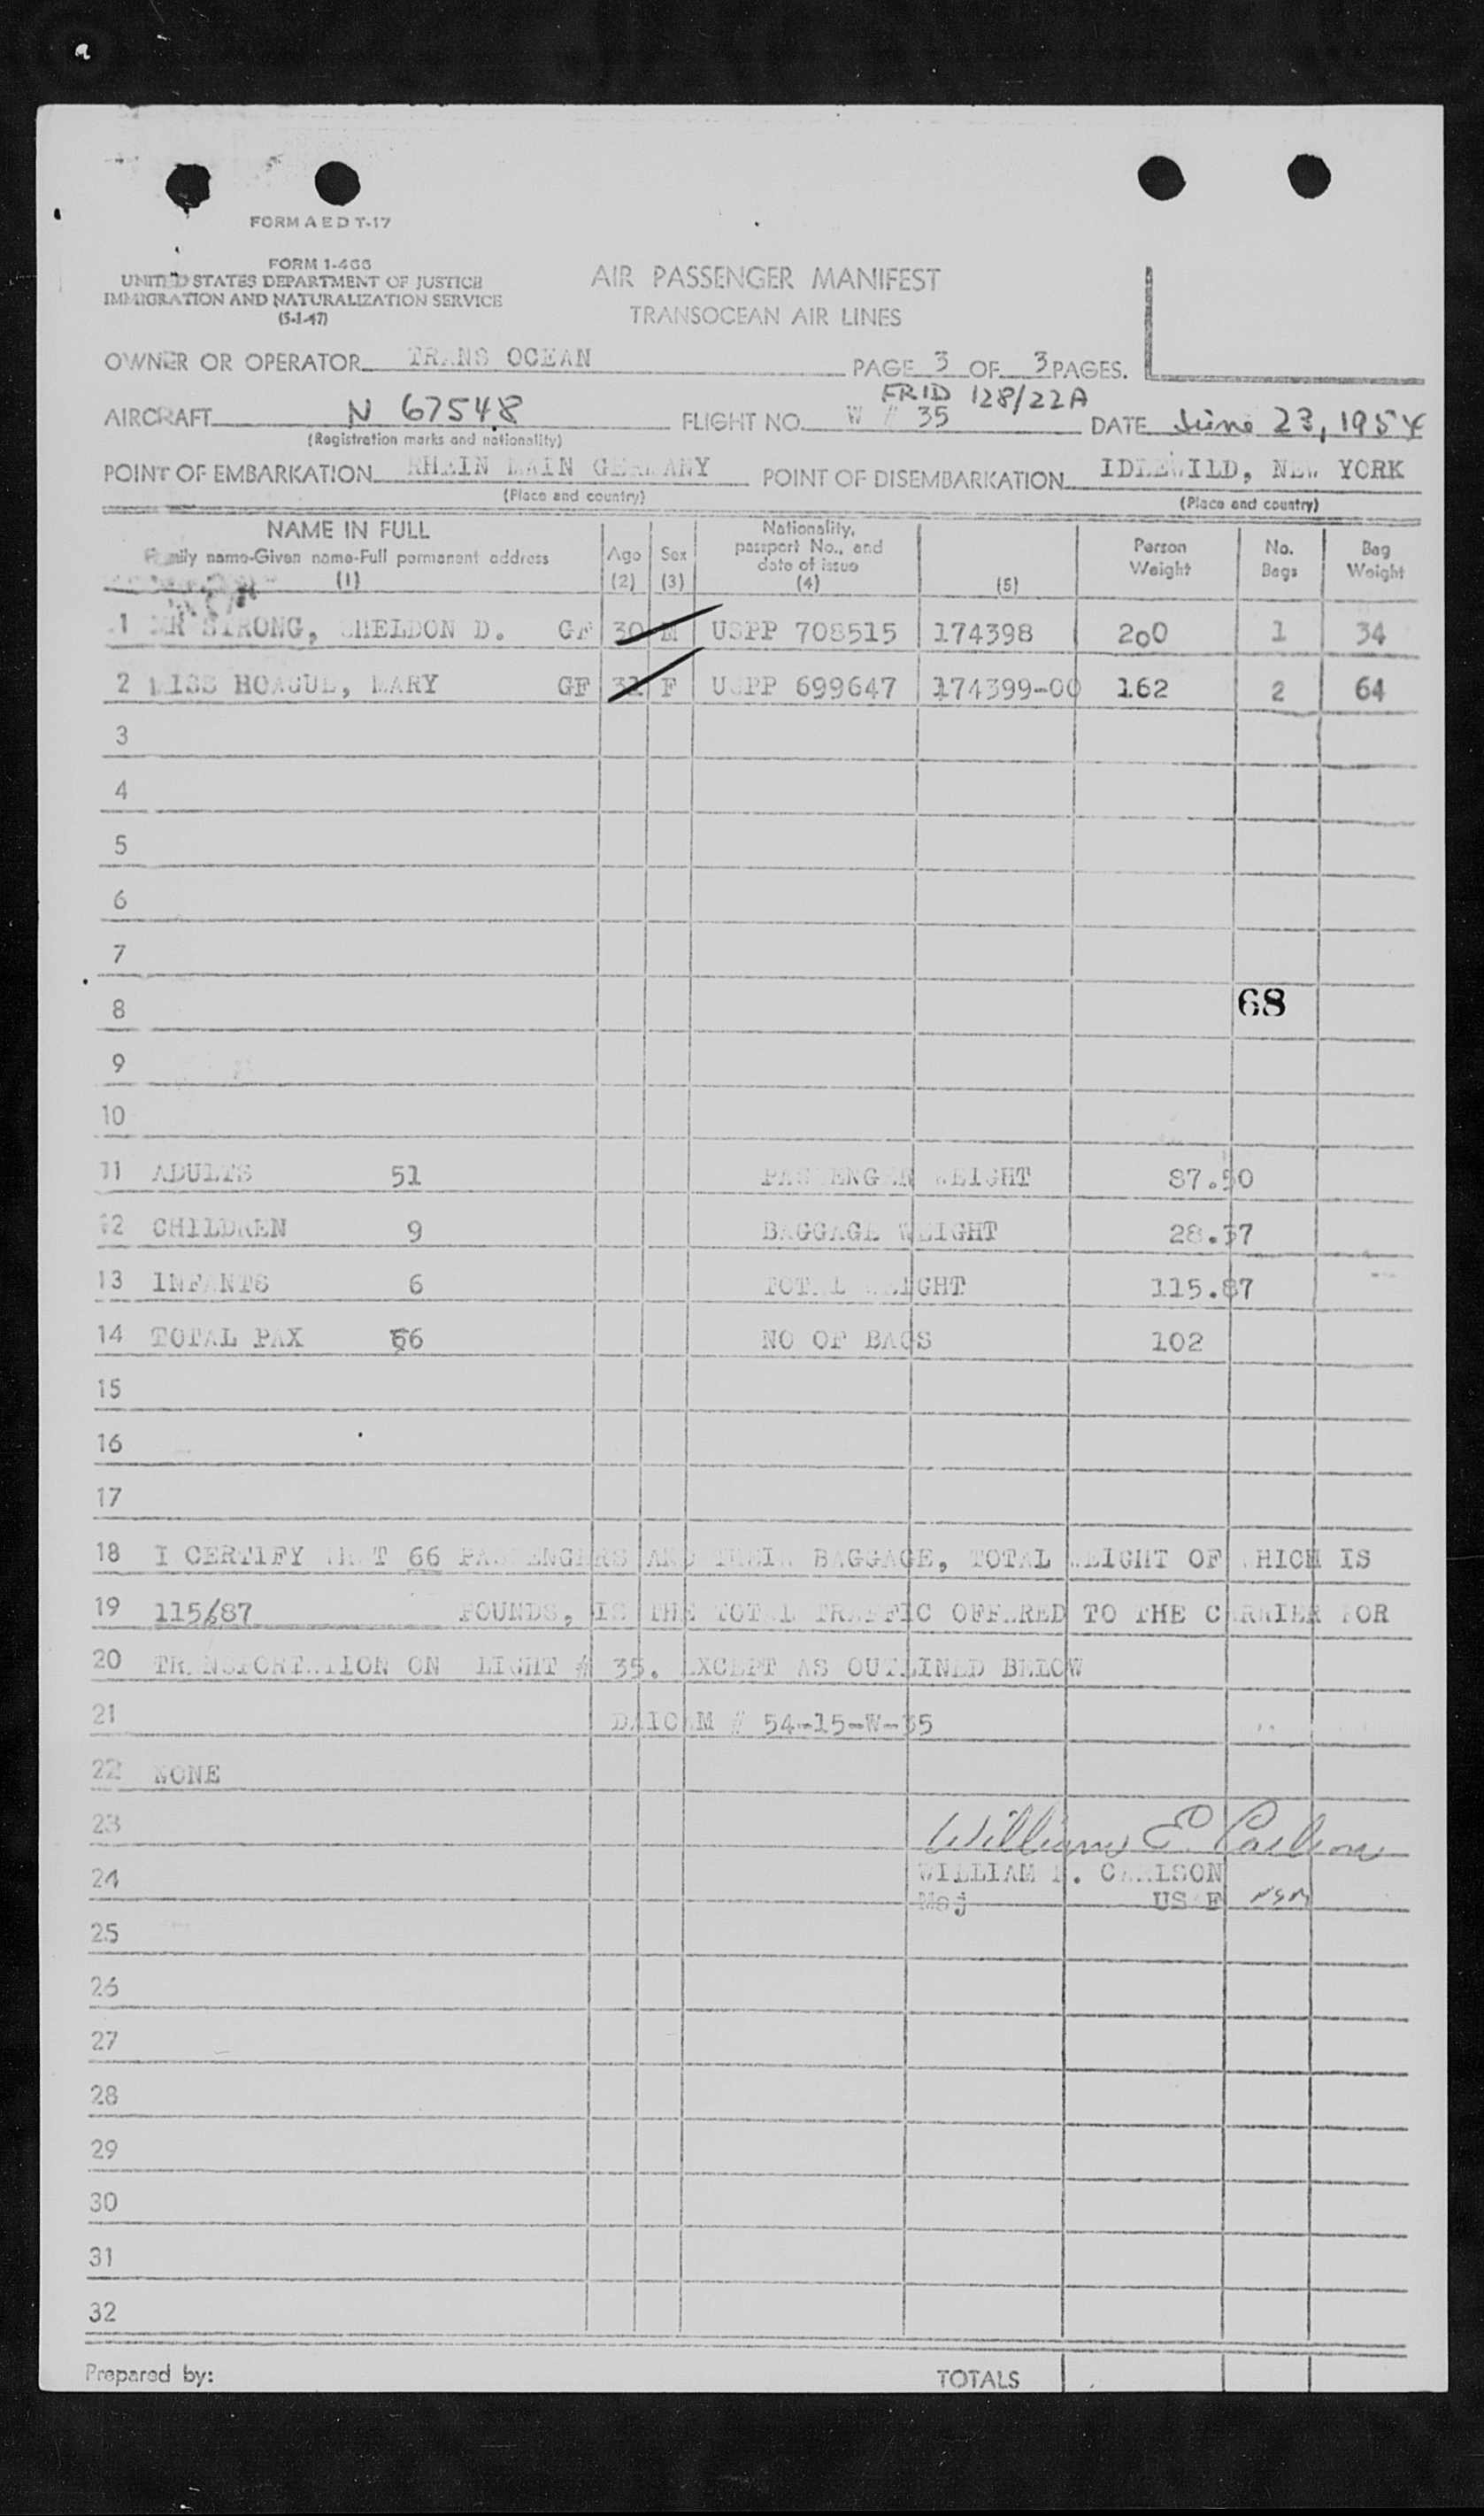 FORM A E D T-17
FORM 1-466
UNITED STATES DEPARTMENT OF JUSTICE
IMMIGRATION AND NATURALIZATION SERVICE
(5-1-47)
AIR PASSENGER MANIFEST
TRANSOCEAN AIR LINES
OWNER OR OPERATOR TRANS OCEAN PAGE 3 OF 3 PAGES.
FRID 128/22A
AIRCRAFT N 67548 FLIGHT NO. W # 35 DATE June 23, 1954
(Registration marks and nationality)
POINT OF EMBARKATION RHEIN MAIN GERMANY POINT OF DISEMBARKATION IDLEWILD, NEW YORK
(Place and country) (Place and country)
NAME IN FULL
Family name-Given name-Full permanent address
(1)
Age (2)
Sex (3)
Nationality, passport No., and date of issue (4)
(5)
Person Weight
No. Bags
Bag Weight
1 MR STRONG, SHELDON D. GF 30 M USPP 708515 174398 200 1 34
2 MISS HOAGUE, MARY GF 31 F USPP 699647 174399-00 162 2 64
3
4
5
6
7
8 68
9
10
11 ADULTS 51 PASSENGER WEIGHT 87.50
12 CHILDREN 9 BAGGAGE WEIGHT 28.37
13 INFANTS 6 TOTAL WEIGHT 115.87
14 TOTAL PAX 66 NO OF BAGS 102
15
16
17
18 I CERTIFY THAT 66 PASSENGERS AND THEIR BAGGAGE, TOTAL WEIGHT OF WHICH IS
19 115/87 POUNDS, IS THE TOTAL TRAFFIC OFFERED TO THE CARRIER FOR
20 TRANSPORTATION ON FLIGHT # 35. EXCEPT AS OUTLINED BELOW
21 DAICAM # 54-15-W-35
22 NONE
23 William E. Carlson
24 WILLIAM E. CARLSON
Maj USAF
25
26
27
28
29
30
31
32
Prepared by: TOTALS